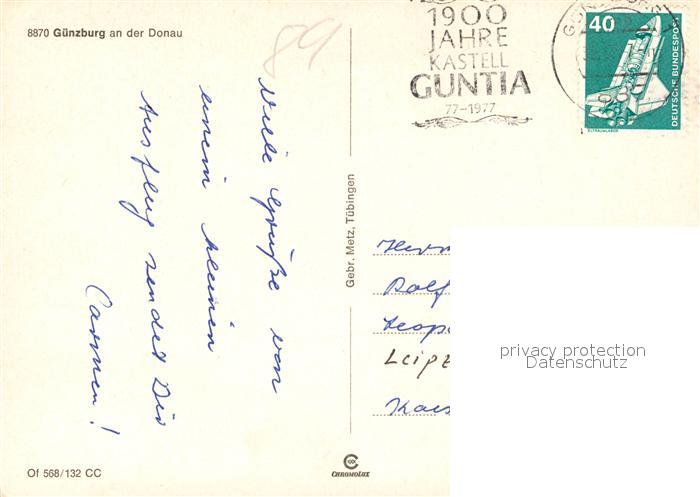 8870 Günzburg an der Donau
89
Viele Grüße von
einem kleinen
Ausflug sendet Dir
Carmen!
Of 568/132 CC
Gebr. Metz, Tübingen
CHROMOLUX
1900
JAHRE
KASTELL
GUNTIA
77–1977
40
DEUTSCHE BUNDESPOST
Herrn
Rolf
Leopo
Leipz
privacy protection
Datenschutz